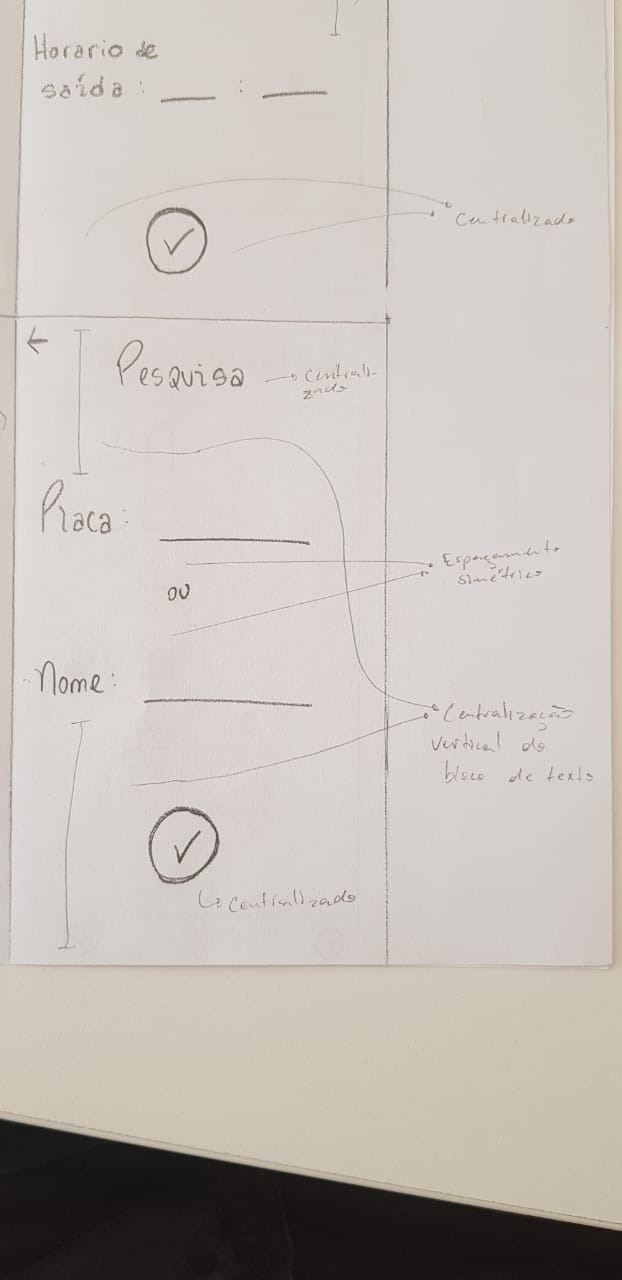 Horario de
saída: __ : __
Centralizado
Pesquisa
Centrali-
zado
Placa:
Espaçamento
simétrico
ou
Nome:
Centralização
vertical do
bloco de texto
Centralizado